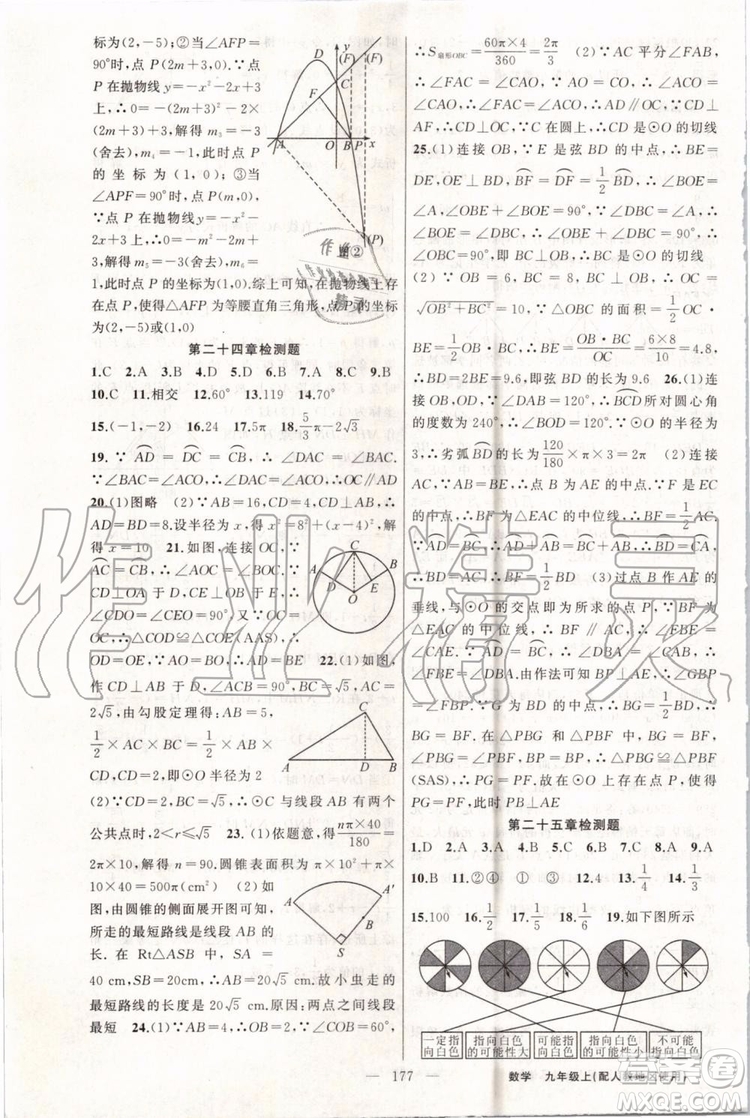 标为(2,-5);②当∠AFP=
90°时,点P(2m+3,0).∵点
P在抛物线y=-x²-2x+3
上,∴0=-(2m+3)²-2×
(2m+3)+3,解得m₃=-3
(舍去),m₄=-1,此时点P
的坐标为(1,0);③当
∠APF=90°时,点P(m,0).
∵点P在抛物线y=-x²-
2x+3上,∴0=-m²-2m+
3,解得m₅=-3(舍去),m₆=
1,此时点P的坐标为(1,0).综上可知,在抛物线上存
在点P,使得△AFP为等腰直角三角形,点P的坐标
为(2,-5)或(1,0)
第二十四章检测题
1.C 2.A 3.B 4.D 5.D 6.B 7.A 8.B 9.B
10.C 11.相交 12.60° 13.119 14.70°
15.(-1,-2) 16.24 17.5π 18.5/3π-2√3
19.∵∠BAC=∠DAC,
∴BC=CD
20.(1)图略 (2)∵AB=16,CD=4,CD⊥AB,∴
AD=BD=8.设半径为x,得x²=8²+(x-4)²,解
得x=10 21.如图,连接OC,∵
AC=CB,∴∠AOC=∠BOC.∵
CD⊥OA,CE⊥OB,∴
∠CDO=∠CEO=90°.∵CO=
CO,∴△COD≌△COE(AAS),∴
OD=OE,∵AO=BO,∴AD=BE 22.(1)如图,
作CD⊥AB于点D,∠ACB=90°,BC=√5,AC=
2√5,由勾股定理得:AB=5,
1/2×AC×BC=1/2×AB×
CD,CD=2,即⊙O半径为2
(2)∵⊙O与线段AB有两个
公共点时,2<r≤√5 23.(1)依题意,得nπ×40/180=
2π×10,解得n=90.圆锥表面积=π×10²+π×
10×40=500π(cm²) (2)如
图,由圆锥的侧面展开图可知,小虫
所走的最短路线是线段AB的
长.在Rt△ASB中,SA=
40 cm,SB=20cm,∴AB=20√5cm.故小虫走的
最短路线的长度是20√5cm.原因:两点之间线段
最短 24.(1)∵AB=OC=OB,∴∠COB=60°,
∴S扇形OBC=60π×4/360=2π/3 (2)∵AC平分∠FAB,
∴∠FAC=∠CAO,∵AO=CO,∴∠ACO=
∠CAO,∴∠FAC=∠ACO,∴AD∥OC,∵CD⊥
AF,∴CD⊥OC,∵C在圆上,∴CD是⊙O的切线
25.(1)连接OB,∵E是弦BD的中点,∴BE=
DE,OE⊥BD,BF=DF=1/2BD,∴∠BOE=
∠A,∠OBE+∠BOE=90°,∵∠DBC=∠A,
∴∠BOE=∠DBC,∴∠OBE+∠DBC=90°,
∴∠OBC=90°,即BC⊥OB,∴BC是⊙O的切线
(2)∵OB=6,BC=8,BC⊥OB,∴OC=
√OB²+BC²=10,∵△OBC的面积=1/2OC·
BE=1/2OB·BC,∴BE=OB·BC/OC=6×8/10=4.8,
∴BD=2BE=9.6,即弦BD的长为9.6 26.(1)
的度数为240°,
3,∴劣弧BD的长为120/180×π×3=2π
∴BF为△EAC的中位线,∴BF=1/2AC
(3)过点B作AE的
垂线,与⊙O的交点即为所求的点P,∵BF为
△EAC的中位线,∴BF∥AC,∴∠FBE=
∠CAE.∵∠CAE=∠DBA,
∠FBE=∠DBA.由作法可知BP⊥AE,∴∠GBP
=∠FBP.∵G为BD的中点,∴BG=1/2BD,∴
BG=BF.在△PBG和△PBF中,
∠PBG=∠PBF,BP=BP,∴△PBG≌△PBF
(SAS),∴PG=PF,此时PB⊥AE
第二十五章检测题
1.D 2.A 3.A 4.C 5.B 6.C 7.B 8.A 9.A
10.B 11.②④ ① ③ 12.1/3 13.1/4 14.1/3
15.100 16.1/2 17.1/2 18.1/2 19.如下图所示
一定指向白色
指向白色的可能性大
可能指向白色
指向白色的可能性小
不可能指向白色
177
数学 九年级上(配人教地区使用)
作业精灵